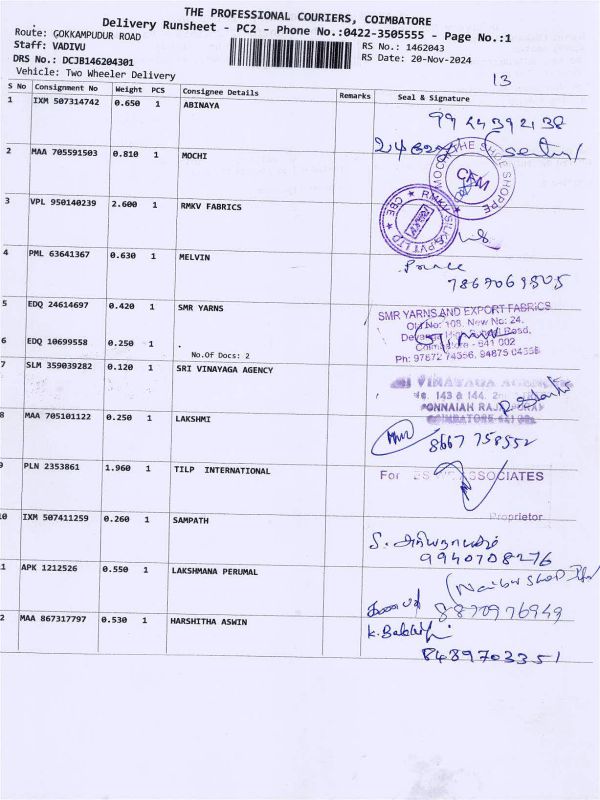 THE PROFESSIONAL COURIERS, COIMBATORE
Delivery Runsheet - PC2 - Phone No.:0422-3505555 - Page No.:1
Route: GOKKAMPUDUR ROAD
Staff: VADIVU
RS No.: 1462043
DRS No.: DCJB146204301
RS Date: 20-Nov-2024
Vehicle: Two Wheeler Delivery
13
S No Consignment No Weight PCS Consignee Details Remarks Seal & Signature
1 IXM 507314742 0.650 1 ABINAYA
9944392138
2 MAA 705591503 0.810 1 MOCHI
THE SHOE SHOPPE
CFM
3 VPL 950140239 2.600 1 RMKV FABRICS
RMKV SILKS PVT LTD
CBE
4 PML 63641367 0.630 1 MELVIN
7867069505
5 EDQ 24614697 0.420 1 SMR YARNS
SMR YARNS AND EXPORT FABRICS
Old No: 108, New No: 24,
Road,
Coimbatore - 641 002
Ph: 97872 74356, 94875 04356
6 EDQ 10699558 0.250 1 .
No.Of Docs: 2
7 SLM 359039282 0.120 1 SRI VINAYAGA AGENCY
VINAYAGA
No. 143 & 144,
PONNAIAH
COIMBATORE
8 MAA 705101122 0.250 1 LAKSHMI
8667 758552
9 PLN 2353861 1.960 1 TILP INTERNATIONAL
For ASSOCIATES
Proprietor
10 IXM 507411259 0.260 1 SAMPATH
9940708276
1 APK 1212526 0.550 1 LAKSHMANA PERUMAL
8870976949
2 MAA 867317797 0.530 1 HARSHITHA ASWIN
8489703351